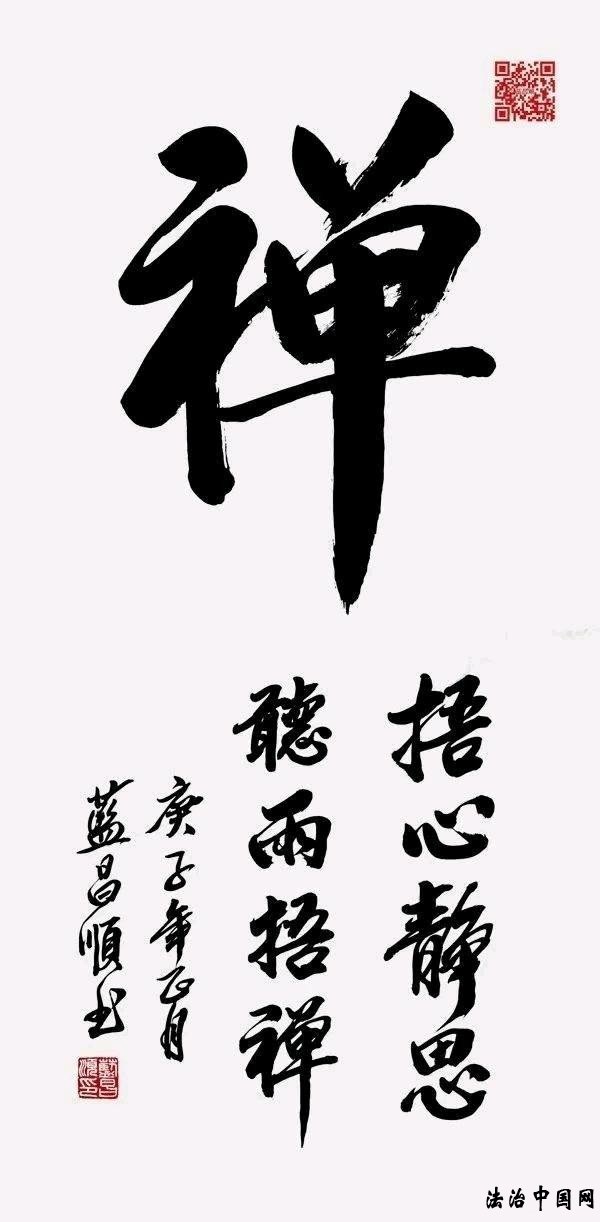 禅
捂心靜思
聽雨捂禅
庚子年正月
藍昌順书
法治中国网